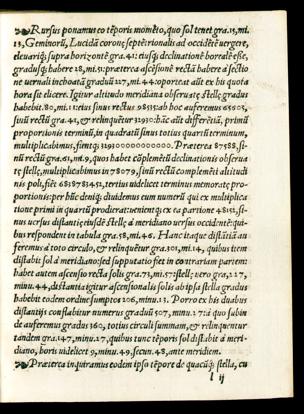 Rursus ponamus eo tẽporis momẽto, quo sol tenet gra.15, mi.
13, Geminorũ, Lucidã coronę septẽtrionalis ad occidẽtẽ uergere,
eleuariq; supra horizontẽ gra.41: eiusq; declinationẽ borealẽ esse,
graduũq; habere 28, mi.51: prætereà ascẽsionẽ rectã habere à sectio
ne uernali inchoatã graduũ 227, mi.44: oportet aũt ele ex his quota
hora sit elicere. Igitur altitudo meridiana obseruatę stellę; gradus
habebit.80, mi.11: eius sinus rectus 98535: ab hoc auferemus 65605,
sinũ rectũ gra.41, & relinquẽtur 32930: hãc aũt differẽtiã, primũ
proportionis terminũ, in quadratũ sinus totius quartũ terminum,
multiplicabimus, fientq; 329300000000000. Præterea 87588, si-
nũ rectũ gra.61, mi.9, quos habet cõplemẽtũ declinationis obserua
tę stellę, multiplicabimus in 78079, sinũ rectũ complemẽti altitudi
nis poli, fiẽt 6838783452, tertius uidelicet terminus memoratę pro-
portionis: per hũc deniq; diuidemus eum numerũ qui ex multiplica
tione primi in quartũ prodierat: uenientq; ex ea partione 48152, si-
nus uersus distantię eiusdẽ stellę à meridiano uersus occidẽtẽ: qui-
bus respondent in tabula gra.58, mi.46. Hanc itaque distãtiã au
feremus à toto circulo, & relinquẽtur gra.301, mi.14, quibus item
distabis sol à meridiano: sed supputatio fiet in contrariam partem:
habet autem ascensio recta solis gra.73, mi.57: stellę uero gra.227,
minu.44, distantia igitur ascensionalis solis ab ipsa stella gradus
habebit eodem ordine sumptos 206, minu.13. Porro ex his duabus
distantijs constabitur numerus graduũ 507, minu.27: à quo subin
de auferemus gradus 360, totius circuli summam, & relinquentur
tandem gra.147, minu.27, quibus tunc tẽporis sol distabit à meri-
diano, horis uidelicet 9, minu.49, secun.48, ante meridiem.
Præterea inquiramus eodem ipso tẽpore de quacũq; stella, cu
l ij